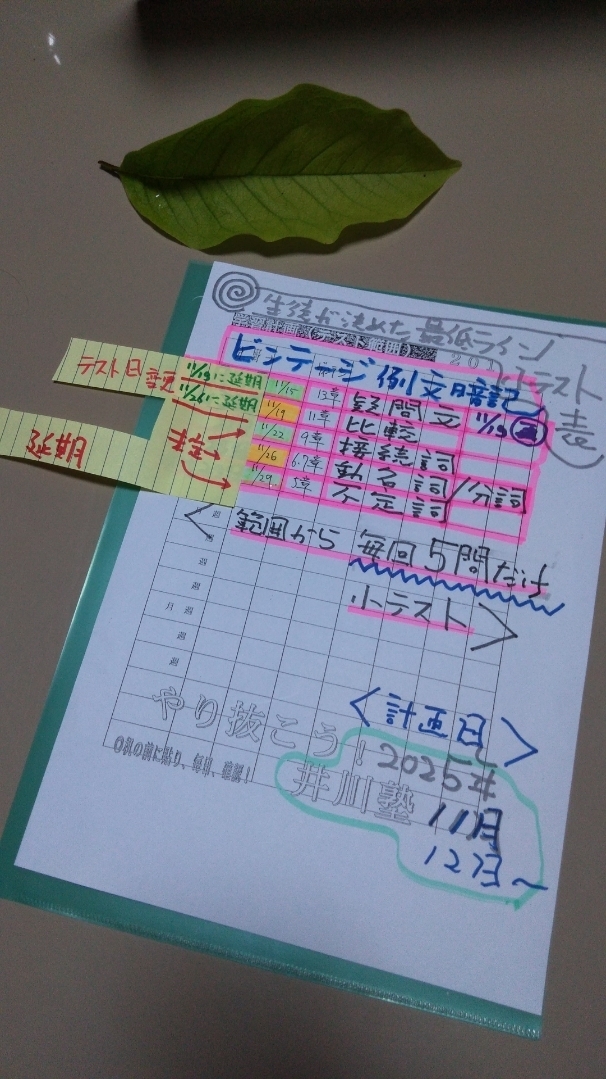 生徒が決めた最低ライン
小テスト表
ビンテージ例文暗記
テスト日変更
11/19に延期 11/15 13章 疑問文 11/19
11/26に延期 11/19 11章 比較
11/22 9章 接続詞
延期
11/26 6.7章 動名詞/分詞
11/29 5章 不定詞
<範囲から 毎回5問だけ
小テスト>
週
週
週
月 週
週
週
やり抜こう!
井川塾
<計画日>
2025年
11月
12日~